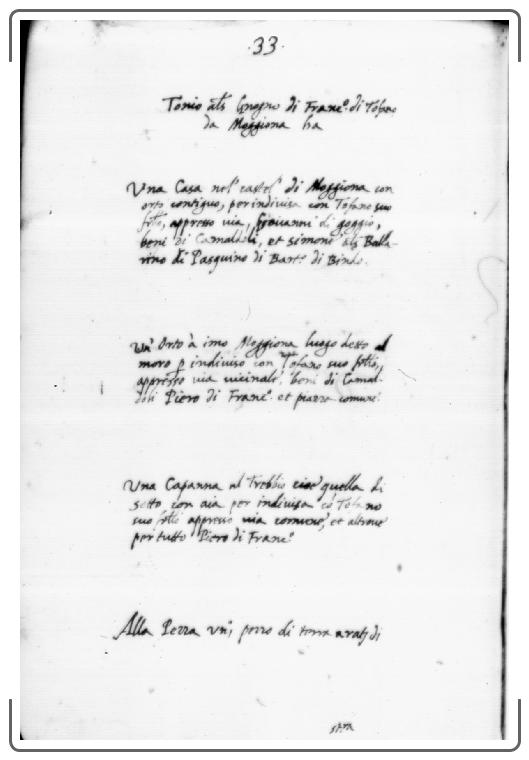 .33.
Tonio als Gnogno di Franc.o di Tofano
da Moggiona ha
Una Casa nel castel di Moggiona con
orto contiguo, per indivisa con Tofano suo
frlo, appresso via, Giovanni di goggio,
beni di Camaldoli, et simone als Balla-
rino di Pasquino di Bart.o di Bindo.
un' Orto à imo Moggiona luogo detto al
moro p indiviso con Tofano suo frllo,
appresso via vicinale, beni di Camal-
doli Piero di Franc.o et piazza comune.
Una Capanna al Trebbio cioe quella di
sotto con aia per indivisa cō Tofano
suo frllo appresso via comune, et altrove
per tutto Piero di Franc.o
Alla Pezza un, pezzo di terra